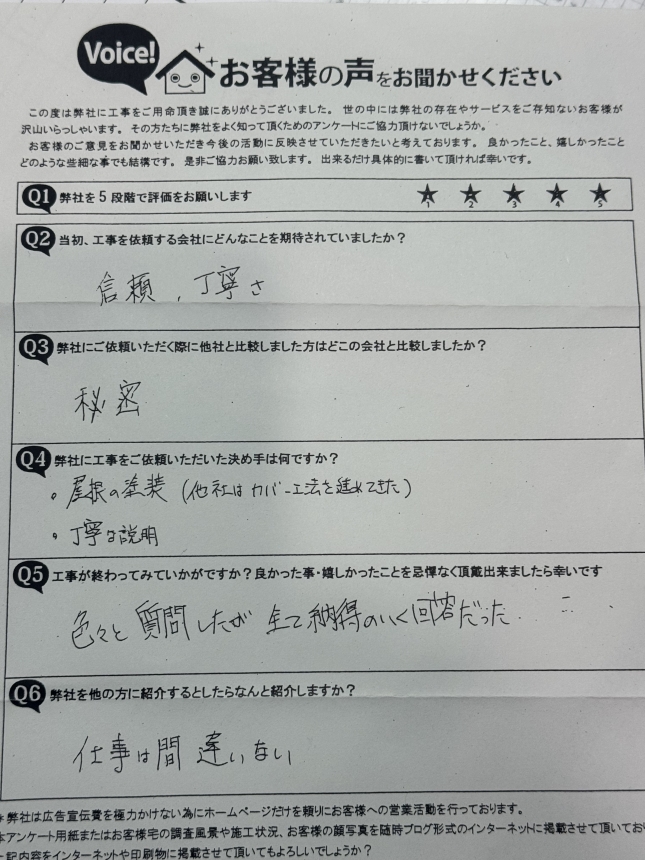 Voice!
お客様の声をお聞かせください
この度は弊社に工事をご用命頂き誠にありがとうございました。 世の中には弊社の存在やサービスをご存知ないお客様が
沢山いらっしゃいます。 その方たちに弊社をよく知って頂くためのアンケートにご協力頂けないでしょうか。
お客様のご意見をお聞かせいただき今後の活動に反映させていただきたいと考えております。 良かったこと、嬉しかったこと
どのような些細な事でも結構です。 是非ご協力お願い致します。 出来るだけ具体的に書いて頂ければ幸いです。
Q1 弊社を5段階で評価をお願いします ★ ★ ★ ★ ★
1 2 3 4 5
Q2 当初、工事を依頼する会社にどんなことを期待されていましたか？
信頼、丁寧さ
Q3 弊社にご依頼いただく際に他社と比較しました方はどこの会社と比較しましたか？
秘密
Q4 弊社に工事をご依頼いただいた決め手は何ですか？
。屋根の塗装 (他社はカバー工法を進めてきた)
・丁寧な説明
Q5 工事が終わってみていかがですか？良かった事・嬉しかったことを忌憚なく頂戴出来ましたら幸いです
色々と質問したが全て納得のいく回答だった
Q6 弊社を他の方に紹介するとしたらなんと紹介しますか？
仕事は間違いない
＊弊社は広告宣伝費を極力かけない為にホームページだけを頼りにお客様への営業活動を行っております。
本アンケート用紙またはお客様宅の調査風景や施工状況、お客様の顔写真を随時ブログ形式のインターネットに掲載させて頂いてお
記内容をインターネットや印刷物に掲載させて頂いてもよろしいでしょうか？